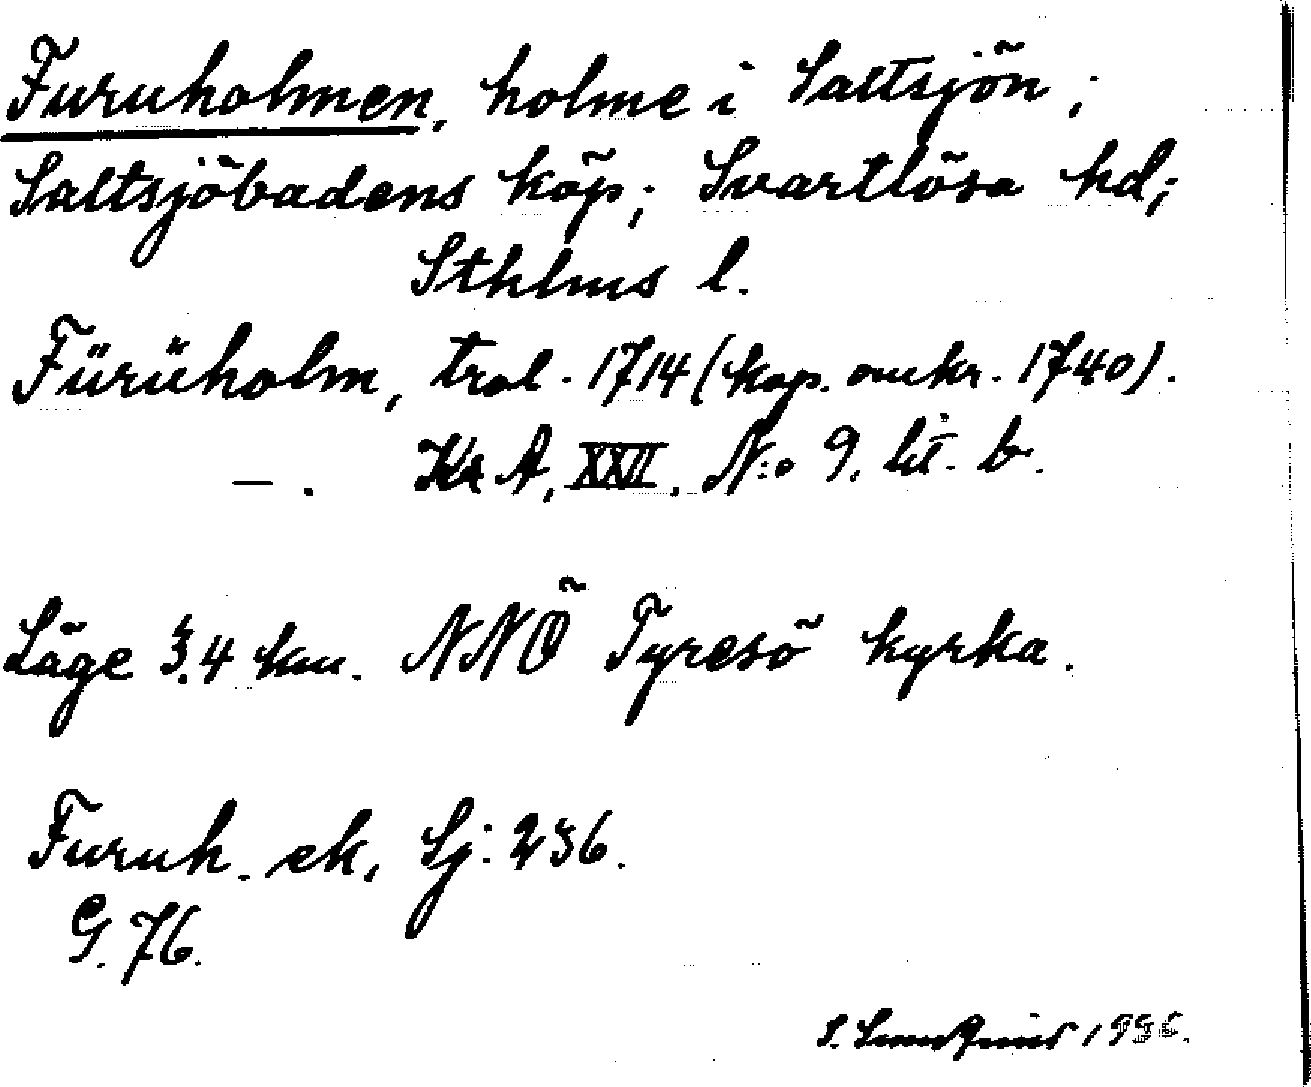 Furuholmen, holme i Saltsjön;
Saltsjöbadens köp; Svartlösa hd;
Sthlms l.
Füruholm, trol. 1714 (kop. omkr. 1740).
— . Kr A, XXII. N:o 9. lit. b.
Läge 3.4 km. NNÖ Tyresö kyrka.
Furuh. ek, Sj: 236.
G. 76.
S.